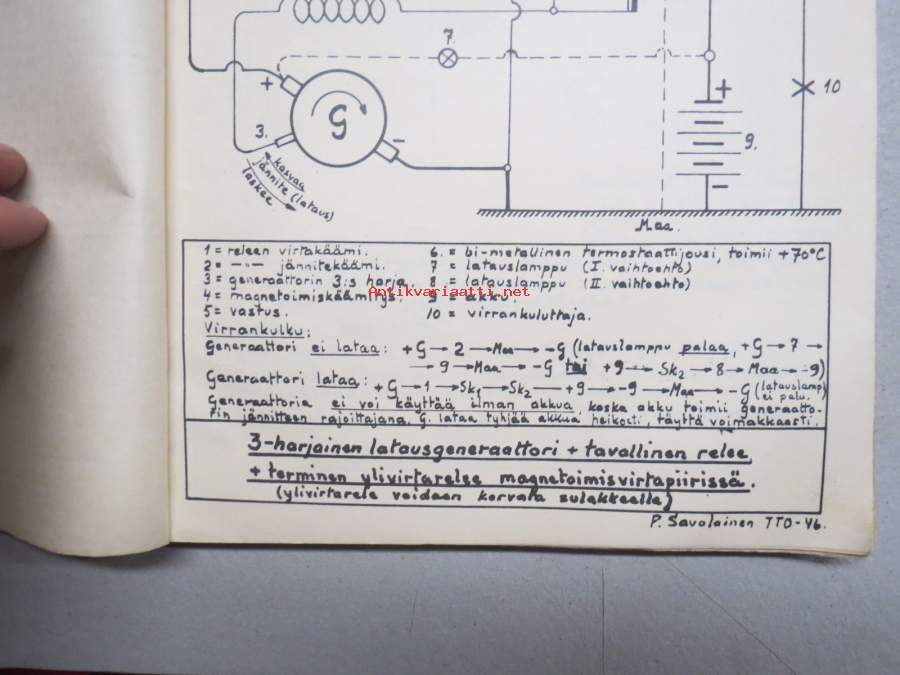 7.
+
G
3.
-
kasvaa
jännite (lataus)
laskee
+
9.
-
10
Maa.
1 = releen virtakäämi.
2 = -"- jännitekäämi.
3 = generaattorin 3:s harja.
4 = magnetoimiskäämitys.
5 = vastus.
6. = bi-metallinen termostaattijousi, toimii +70°C
7 = latauslamppu (I. vaihtoehto)
8. = latauslamppu (II. vaihtoehto)
9 = akku.
10 = virrankuluttaja.
Antikvariaatti.net
Virrankulku:
Generaattori ei lataa: +G → 2 → Maa → -G (latauslamppu palaa, +G → 7 →
→ 9 → Maa → -G tai +9 → Sk2 → 8 → Maa → -9)
Generaattori lataa: +G → 1 → Sk1 → Sk2 → +9 → -9 → Maa → -G (latauslamp) ei palu.
Generaattoria ei voi käyttää ilman akkua koska akku toimii generaatto-
rin jännitteen rajoittajana. G. lataa tyhjää akkua heikosti, täyttä voimakkaasti.
3-harjainen latausgeneraattori + tavallinen relee
+ terminen ylivirtarelee magnetoimisvirtapiirissä.
(ylivirtarele voidaan korvata sulakkeella)
P. Savolainen TTO-46.